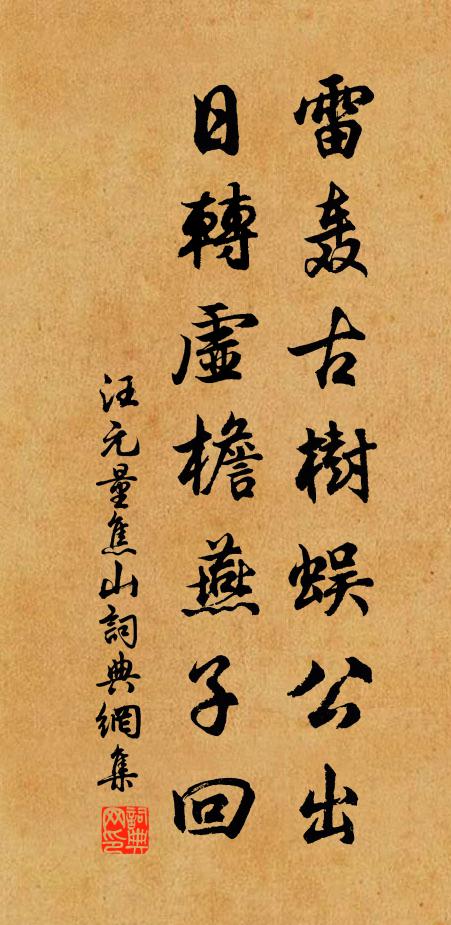 雷轰古樹蜈公出
日轉虛檐燕子回
汪元量焦山詞典網集
詞典网印